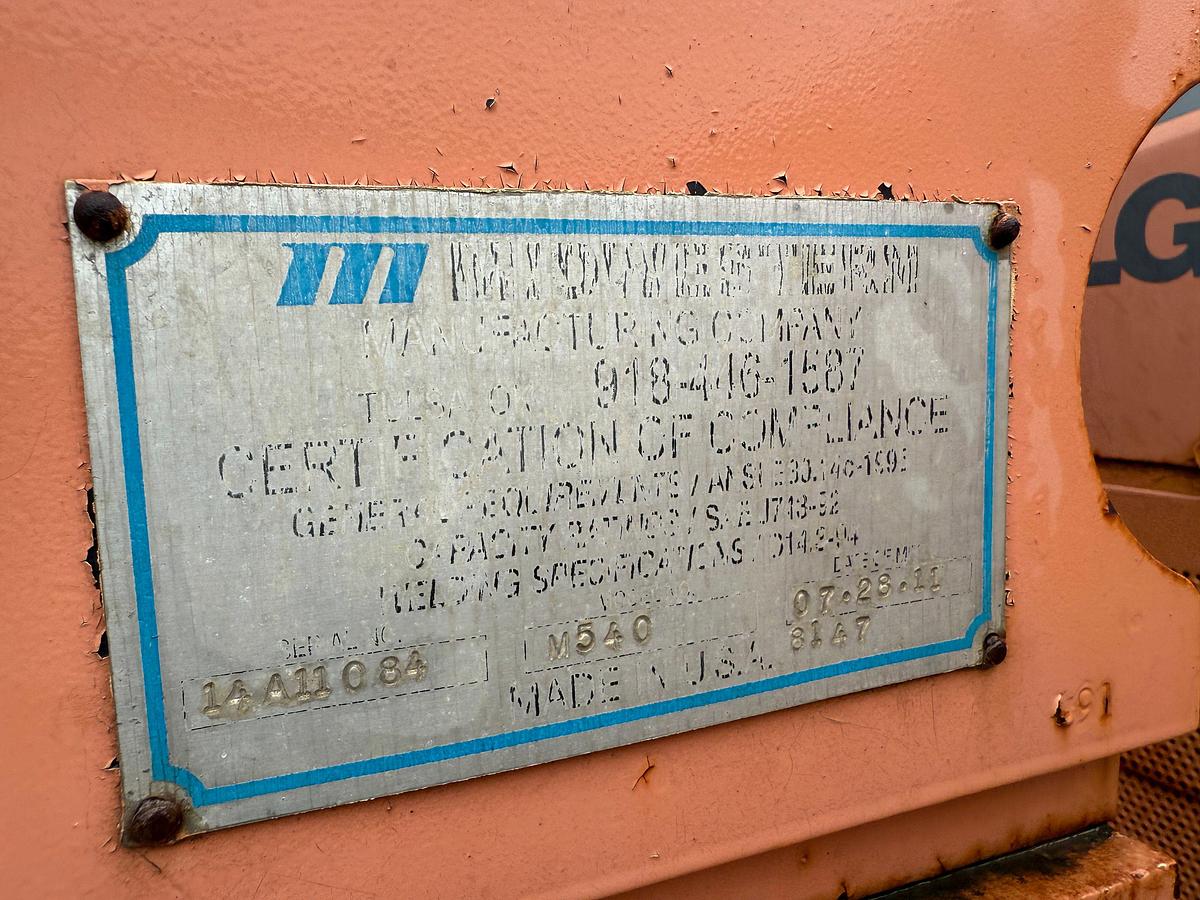 m MIDWESTERN
MANUFACTURING COMPANY
TULSA, OK 918-446-1587
CERTIFICATION OF COMPLIANCE
GENERAL REQUIREMENTS / ANSI B30.14c-1993
CAPACITY RATINGS / SAE J743-92
WELDING SPECIFICATIONS / D14.3-94
SERIAL NO. MODEL NO.
14A11084 M540 07.28.11
8147
MADE IN U.S.A.
LG